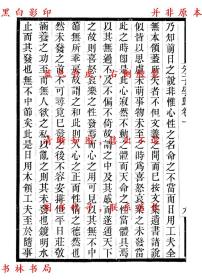 黑白影印 并非原本
乃知前日之說非惟心性之名命之不當而日用工夫全
無本領蓋所失者不但文義之間而已按文集遺書諸說
似皆以思慮未萌事物未至之時爲喜怒哀樂之未發當
此之時卽是此心寂然不動之體而天命之性當體具焉
以其無過不及不偏不倚故謂之中及其感而遂通天下
之故則喜怒哀樂之性發焉而心之用可見以其無不中
節無所乖戾故謂之和此則人心之正而情性之德然也
然未發之前不可尋覓已覺之後不容安排但平日莊敬
涵養之功至而無人欲之私以亂之則其未發也鏡明水
止而其發也無不中節矣此是日用本領工夫至於隨事
书林书局